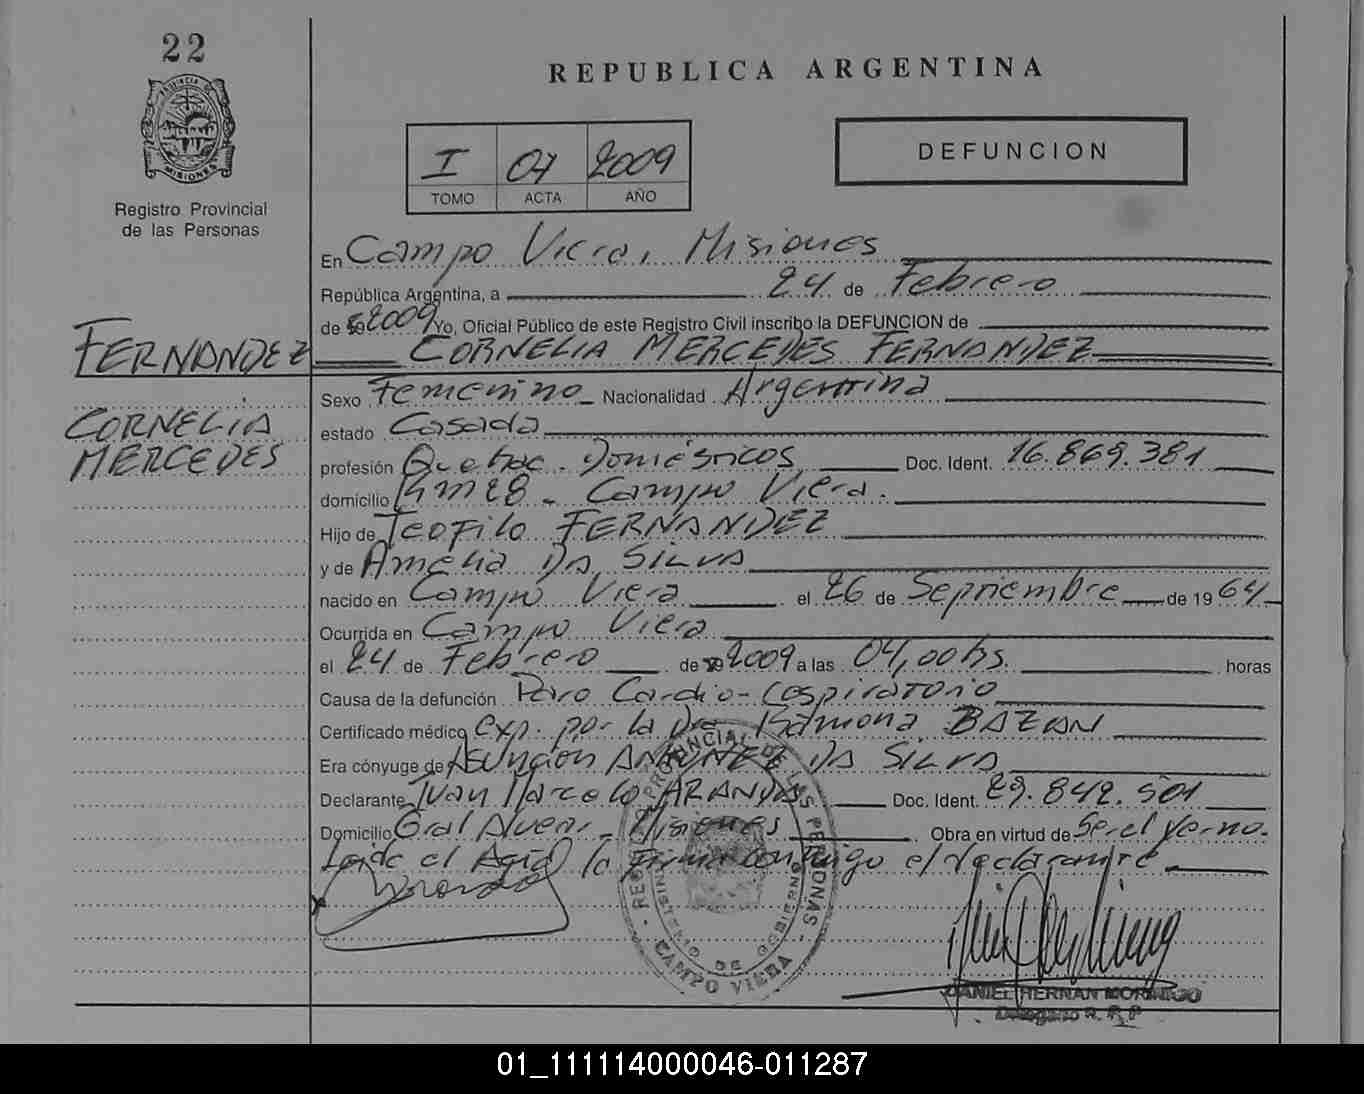 22
PROVINCIA DE
MISIONES
Registro Provincial
de las Personas
REPUBLICA ARGENTINA
I 07 2009
TOMO ACTA AÑO
DEFUNCION
En Campo Viera, Misiones
República Argentina, a 24 de Febrero
de 2009 Yo, Oficial Público de este Registro Civil inscribo la DEFUNCION de
FERNANDEZ CORNELIA MERCEDES FERNANDEZ
CORNELIA
MERCEDES
Sexo Femenino Nacionalidad Argentina
estado Casada
profesión Quehac. Domésticos Doc. Ident. 16.869.381
domicilio Km 28 - Campo Viera.
Hijo de Teofilo FERNANDEZ
y de Amelia DA SILVA
nacido en Campo Viera el 26 de Septiembre de 1964
Ocurrida en Campo Viera
el 24 de Febrero de 2009 a las 04,00 hs. horas
Causa de la defunción Paro Cardio-respiratorio
Certificado médico exp. por la Dra. Ramona BAZAN
Era cónyuge de Asunción ANTUNEZ DA SILVA
Declarante Juan Marcelo ARANDA Doc. Ident. 29.842.501
Domicilio Gral Alvear - Misiones Obra en virtud de Ser el Yerno.
Leida el Acta la Firma conmigo el declarante
REGISTRO PROVINCIAL DE LAS PERSONAS
MINISTERIO DE GOBIERNO
CAMPO VIERA
DANIEL HERNAN MORINIGO
Delegado R. P. P
01_111114000046-011287